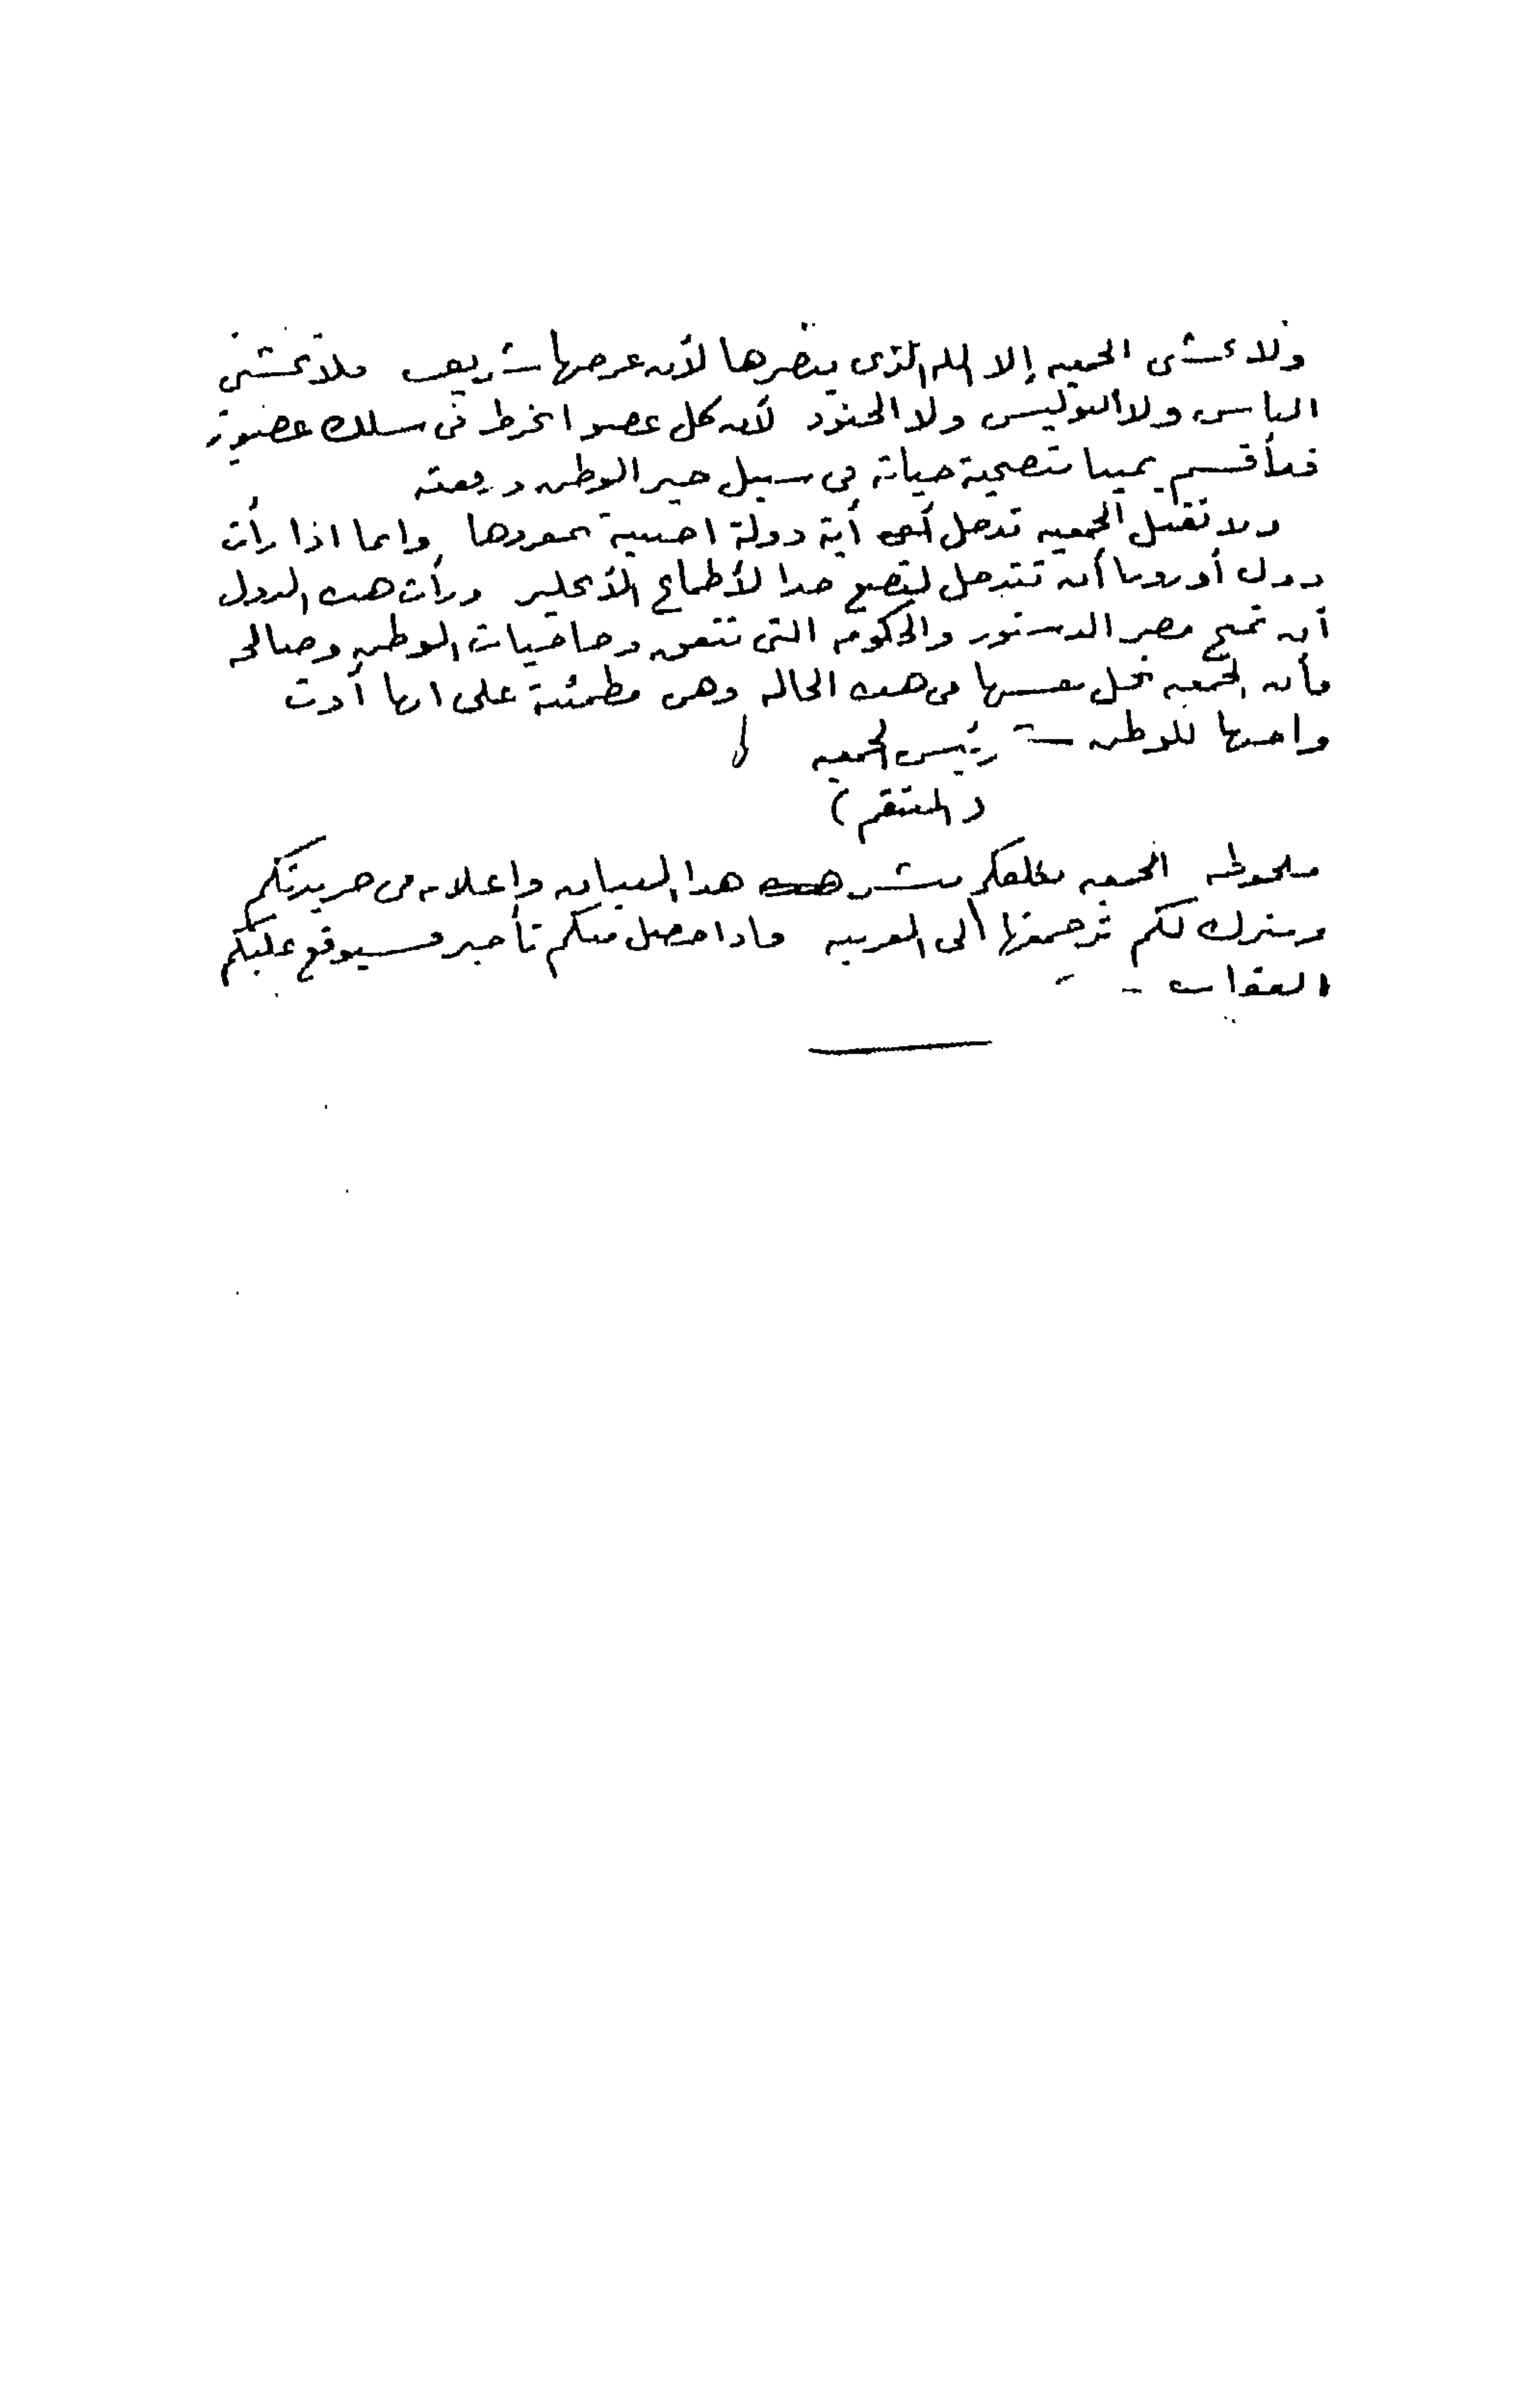 ولا تخشى الجمعيه إلا الله الذى ينصرها لأن غرضها شريف فلا تخشى
الناس ولا البوليس ولا الجنود لأن كل عضو انخرط فى سلك عضوية
فقد أقسم يمينا بتضحية حياته فى سبيل خير الوطن ورفعته
ولا تقبل الجمعيه تدخل أية دولة اجنبية بمفردها وانما اذا رأت
دول أوروبا أن تتدخل لتضع حدا لأطماع الأنجليز ورأت هذه الدول
أن تمنح مصر الدستور والحكومه التى تتفق وحاجيات الوطن وصالحه
فأن الجمعيه تحل نفسها فى هذه الحاله وهى مطمئنة على انها أدت
واجبها للوطن رئيس الجمعيه
(المنتقم)
ملحوظه الجمعيه تكلفكم بنشر هذا البيان واعلانه فى جريدتكم
ونترك لكم ترجمتها الى العربيه فاذا حصل منكم تأخير فسيوقع عليكم
العقاب -